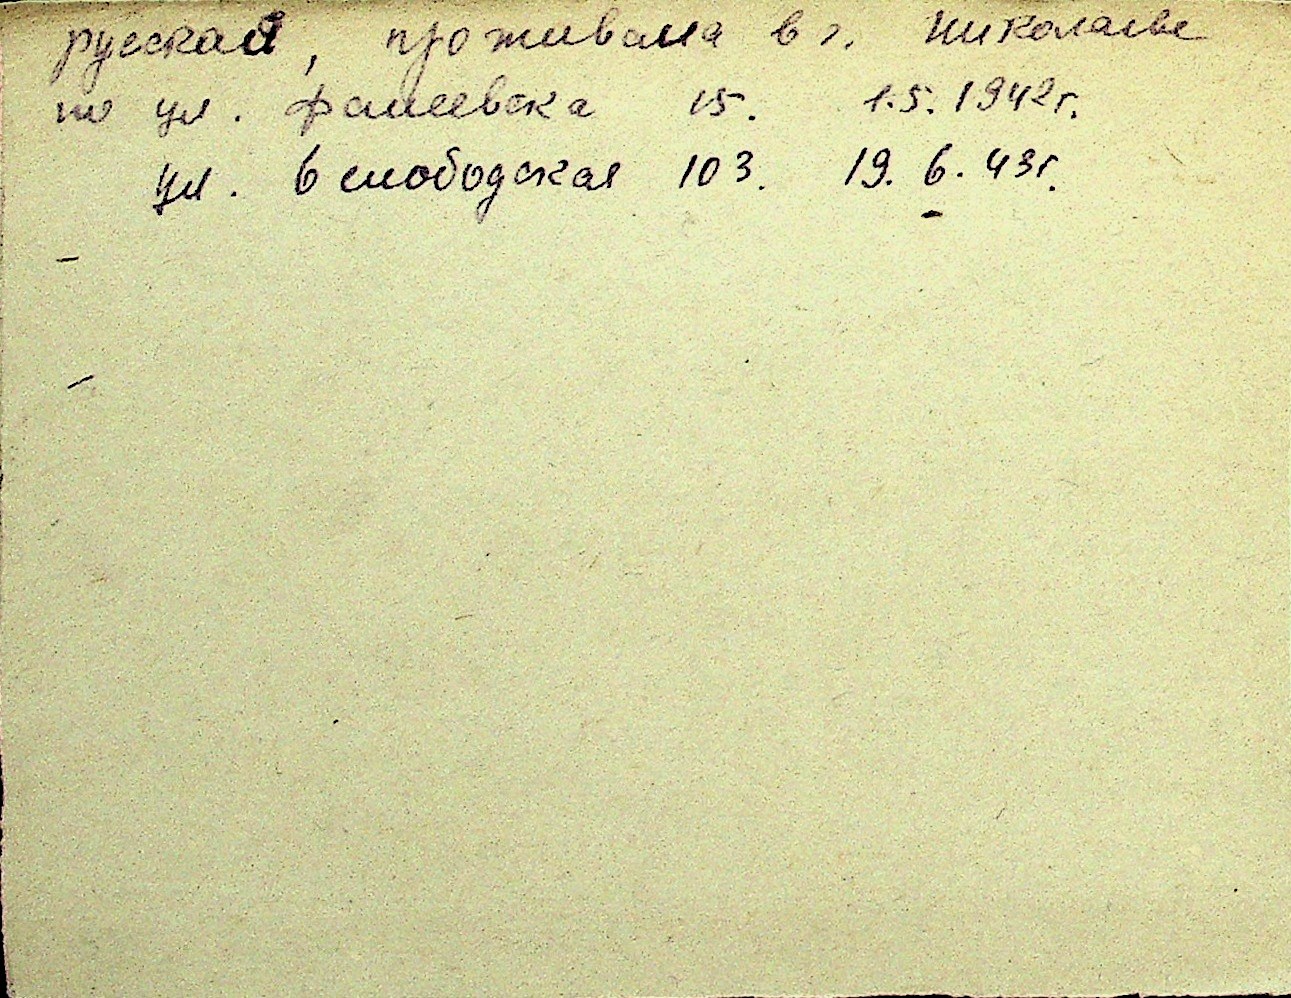 русская, проживала в г. Николаеве
по ул. Фалеевска 15. 1.5.1942г.
ул. 6 слободская 103. 19.6.43г.